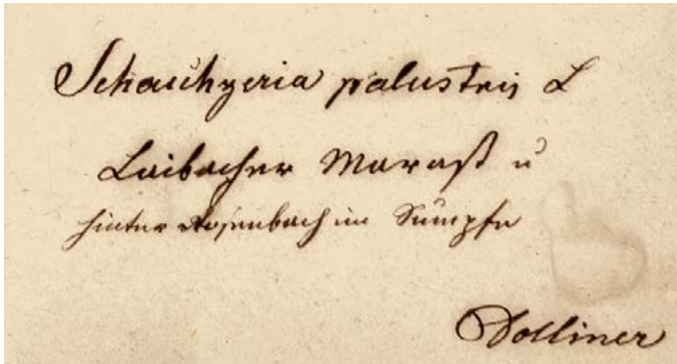 Scheuchzeria palustris L
Laibacher Morast u
hinter Rosenbach im Sumpfe
Dolliner